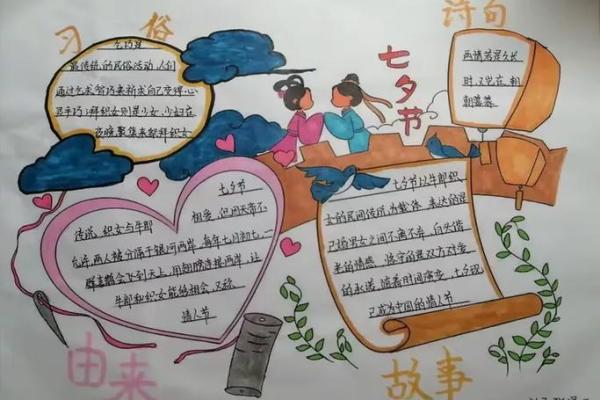 习俗
乞巧是
最传统的民俗活动,人们
通过乞求智巧来祈求自己变得心
灵手巧;拜织女则是少女、少妇在
夜晚聚集来祭拜织女
诗句
两情若是久长
时,又岂在朝
朝暮暮。
七夕节
七夕节
传说,织女与牛郎
相爱,但因天帝不
允许,两人被分隔于银河两岸,每年七月初七,一
群喜鹊会飞到天上,用翅膀连接两岸,让
牛郎和织女能够相会,又称
情人节
由来
七夕节以牛郎织
女的民间传说为载体,表达的是
已婚男女之间不离不弃、白头偕
老的情感,恪守的是双方对爱
的承诺,随着时间演变,七夕现
已成为中国的情人节
故事